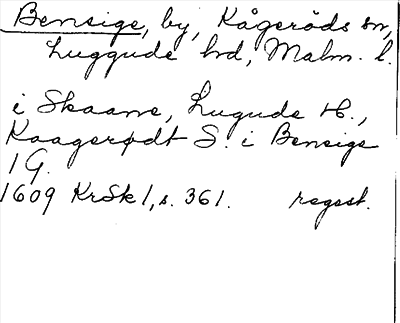 Bensige, by, Kågeröds sn,
Luggude hd, Malm. l.
i Skaane, Lugude H.,
Kaagerødt S. i Bensige
1 G.
1609 KrSk 1, s. 361. regest.